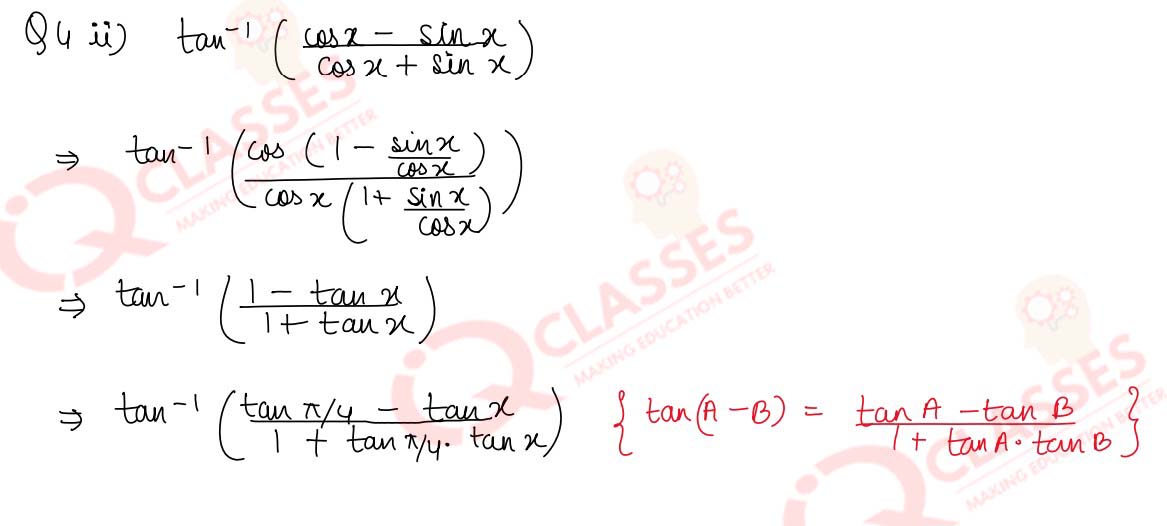 Q4 ii) tan⁻¹ ( cosx - sin x / cos x + sin x )
⇒ tan⁻¹ ( cos ( 1 - sinx / cosx ) / cos x ( 1 + sin x / cosx ) )
⇒ tan⁻¹ ( 1 - tan x / 1 + tan x )
⇒ tan⁻¹ ( tan π/4 - tan x / 1 + tan π/4 · tan x ) { tan(A - B) = tan A - tan B / 1 + tan A · tan B }
IQ CLASSES
MAKING EDUCATION BETTER
IQ CLASSES
MAKING EDUCATION BETTER
IQ CLASSES
MAKING EDUCATION BETTER